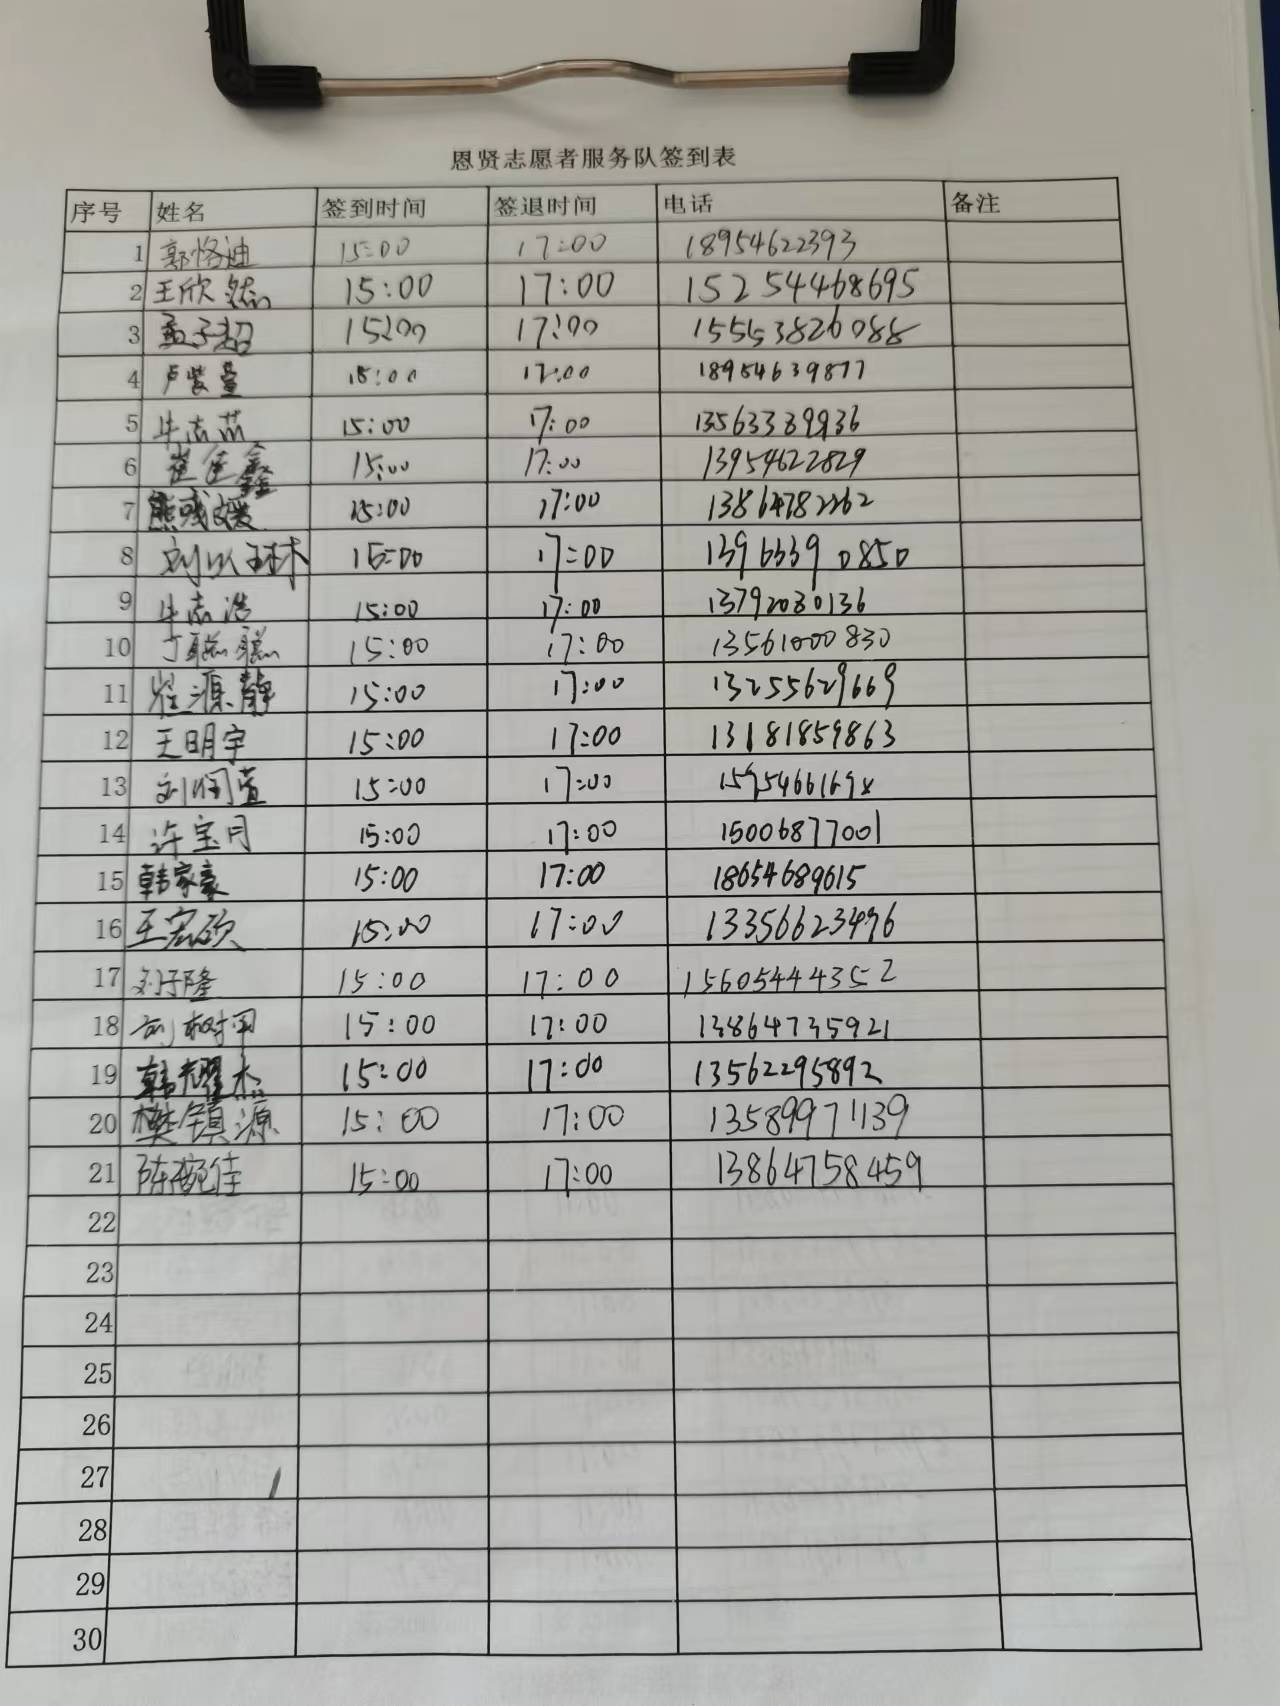 恩贤志愿者服务队签到表
序号 姓名 签到时间 签退时间 电话 备注
1 郭恪迪 15:00 17:00 18954622393
2 王欣然 15:00 17:00 15254468695
3 孟子超 15:00 17:00 15553826088
4 卢紫萱 15:00 17:00 18954639877
5 牛志芯 15:00 17:00
6 崔佳鑫 15:00 17:00 13954622829
7 熊彧媛 15:00 17:00
8 刘以琳 15:00 17:00
9 牛志浩 15:00 17:00 13792080136
10 丁聪聪 15:00 17:00 13561000830
11 程源静 15:00 17:00 13255629669
12 王明宇 15:00 17:00 13181859863
13 刘润萱 15:00 17:00
14 许宝月 15:00 17:00 15006877001
15 韩家豪 15:00 17:00 18654689615
16 王宏硕 15:00 17:00 13356623496
17 刘子隆 15:00 17:00 15605444352
18 15:00 17:00 13864735921
19 韩耀杰 15:00 17:00 13562295892
20 樊镇源 15:00 17:00 13589971139
21 陈婉佳 15:00 17:00 13864758459
22
23
24
25
26
27
28
29
30